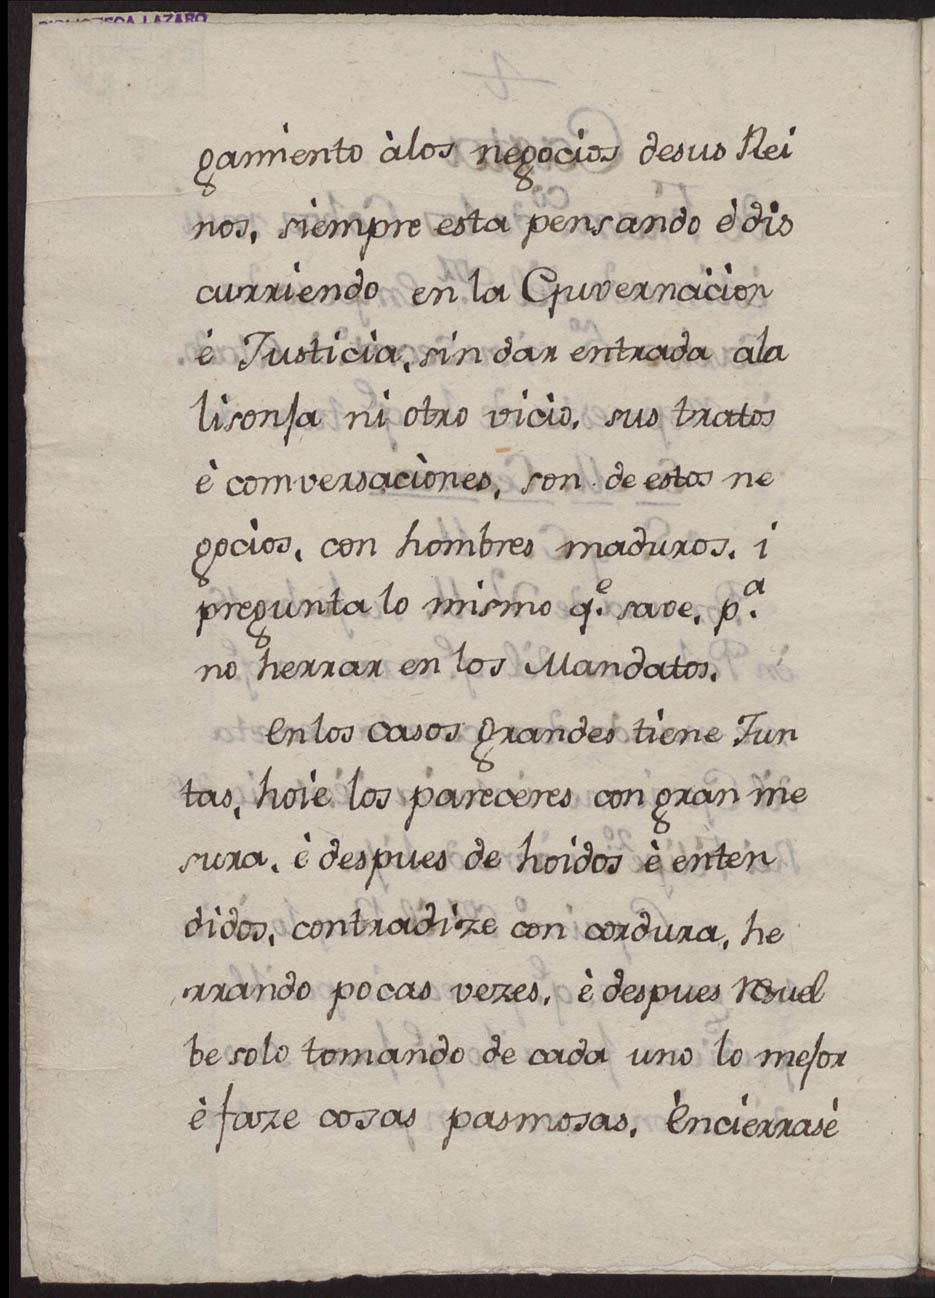 BIBLIOTECA LAZARO
gamiento àlos negocios desus Rei
nos, siempre esta pensando è dis
curriendo en la Guvernacion
é Justicia, sin dar entrada ala
lisonja ni otro vicio, sus tratos
è comversaciònes, son de estos ne
gocios, con hombres maduros, i
pregunta lo mismo q.e save, p.a
no herrar en los Mandatos.
En los casos grandes tiene Jun
tas, hoié los pareceres con gran me
sura, è despues de hoidos è enten
didos, contradize con cordura, he
rrando pocas vezes, è despues resuel
be solo tomando de cada uno lo mejor
è faze cosas pasmosas, Encierrasé